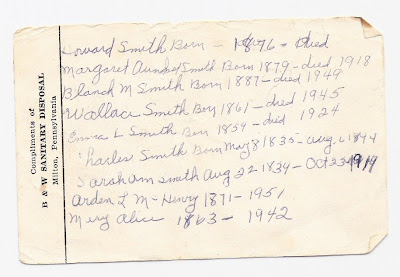 Compliments of
B & W SANITARY DISPOSAL
Milton, Pennsylvania
Howard Smith Born - 1876 - Died
Margaret Smith Born 1879 - died 1918
Blanch M Smith Born 1887 - died 1949
Wallace Smith Born 1861 - died 1945
Emma L Smith Born 1854 - died 1924
Charles Smith Born May 8 1835 - Aug. 6
Sarah Ann Smith Aug 22 1834 - Oct 23 1919
Arden L Mc-Henry 1871 - 1951
Mery Alice 1863 - 1942